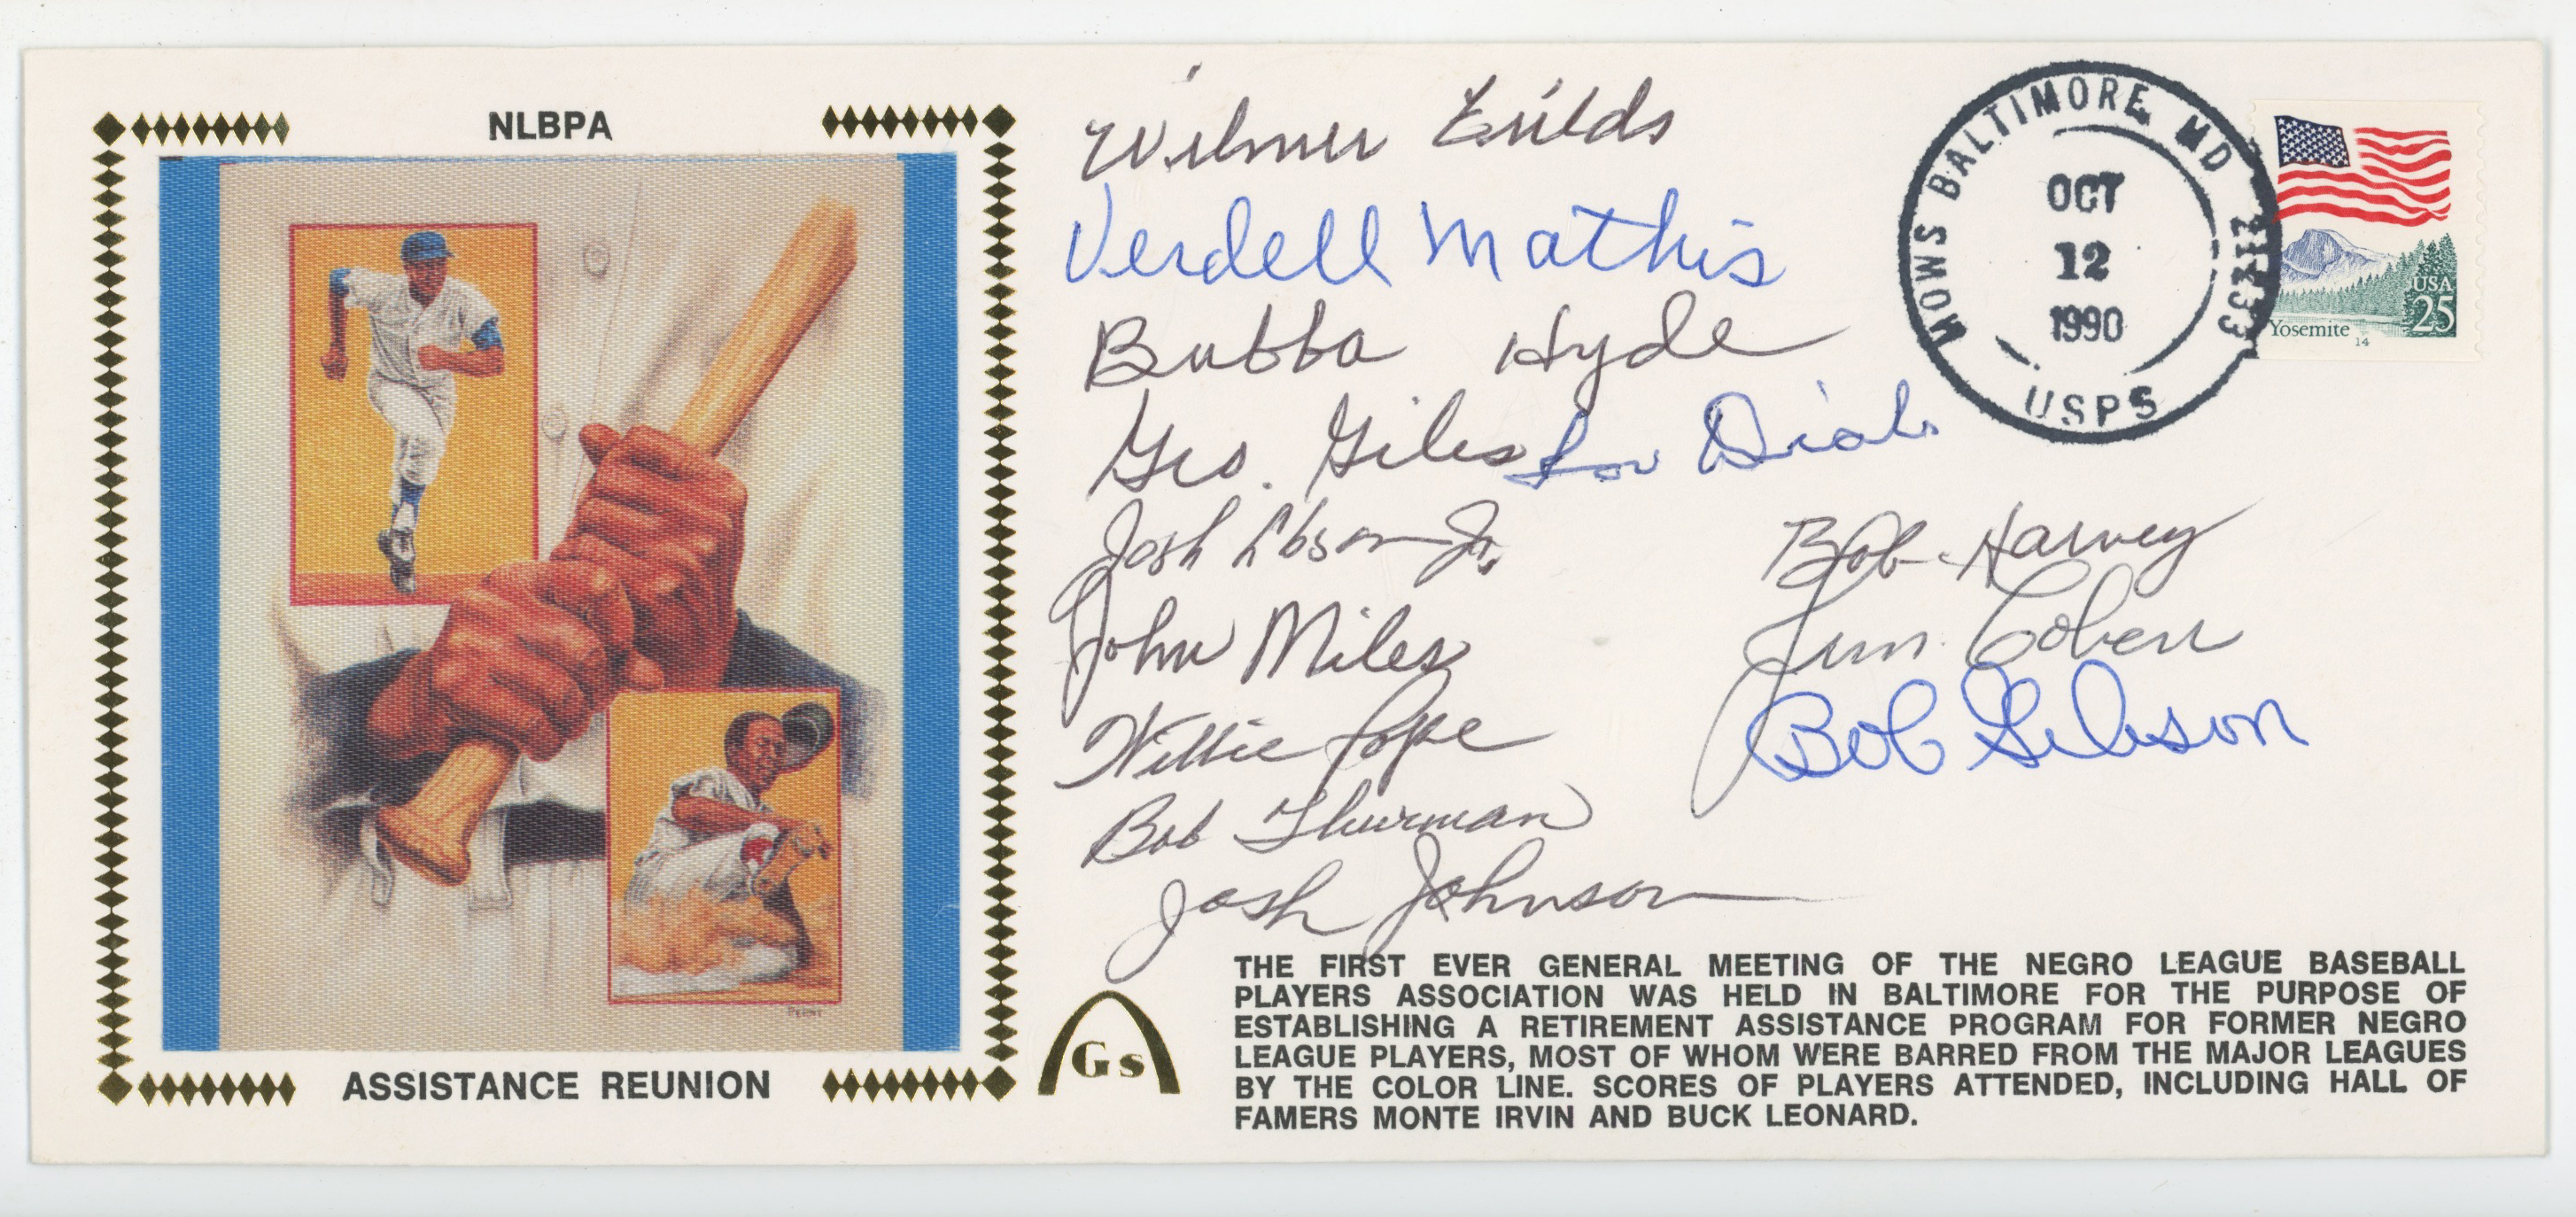 NLBPA
PERRY
ASSISTANCE REUNION
Wilmer Fields
Verdell Mathis
Bubba Hyde
Geo. Giles Lou Dials
Josh Gibson Jr.
John Miles
Willie Pope
Bob Thurman
Josh Johnson
Bob Harvey
Jim Cohen
Bob Gibson
MOWS BALTIMORE, MD 21233
OCT
12
1990
USPS
USA
25
Yosemite
14
Gs
THE FIRST EVER GENERAL MEETING OF THE NEGRO LEAGUE BASEBALL
PLAYERS ASSOCIATION WAS HELD IN BALTIMORE FOR THE PURPOSE OF
ESTABLISHING A RETIREMENT ASSISTANCE PROGRAM FOR FORMER NEGRO
LEAGUE PLAYERS, MOST OF WHOM WERE BARRED FROM THE MAJOR LEAGUES
BY THE COLOR LINE. SCORES OF PLAYERS ATTENDED, INCLUDING HALL OF
FAMERS MONTE IRVIN AND BUCK LEONARD.